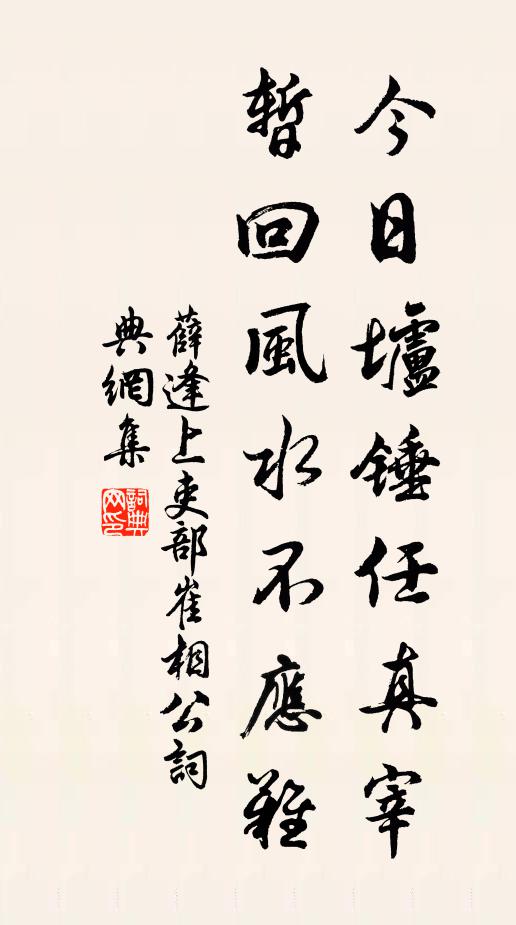 今日壚錘任真宰
暫回風水不應難
薛逢上吏部崔相公詞
典網集
詞典
网印